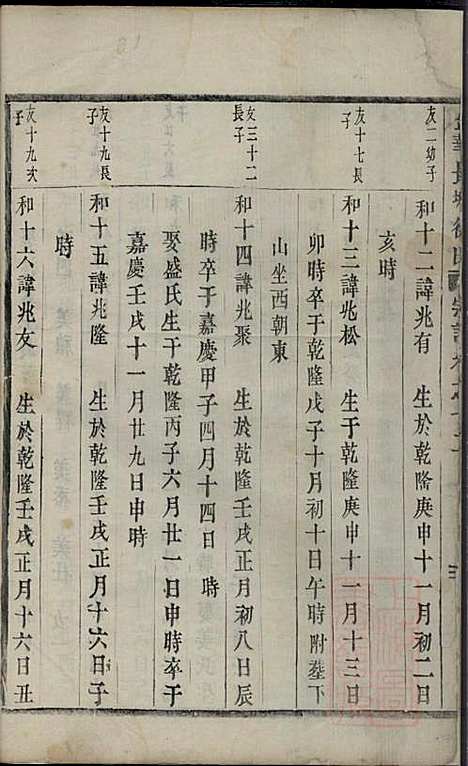 友二幼子
和十二諱兆有 生於乾隆庚申十一月初二日
亥時
友十七長子
和十三諱兆松 生于乾隆庚申十一月十三日
卯時卒于乾隆戊子十月初十日午時附塟下
山坐西朝東
友三十二長子
和十四諱兆聚 生於乾隆壬戌正月初八日辰
時卒于嘉慶甲子四月十四日 時
娶盛氏生于乾隆丙子六月廿一日申時卒于
嘉慶壬戌十一月廿九日申時
友十九長子
和十五諱兆隆 生於乾隆壬戌正月十六日子
時
友十九次
和十六諱兆友 生於乾隆壬戌正月十六日丑